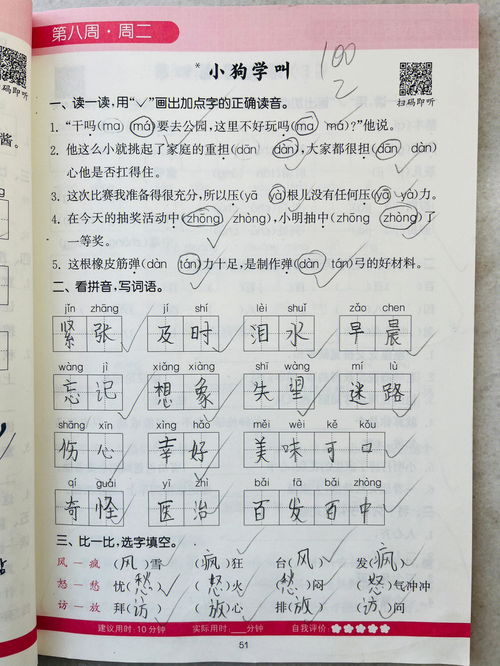 第八周·周二
*小狗学叫
100
2
扫码即听
码即听
酱。
一、读一读,用“✓”画出加点字的正确读音。
1. “干吗(ma má)要去公园,这里不好玩吗(ma má)?”他说。
2. 他这么小就挑起了家庭的重担(dān dàn),大家都很担(dān dàn)
心他是否扛得住。
3. 这次比赛我准备得很充分,所以压(yā yà)根儿没有任何压(yā yà)力。
4. 在今天的抽奖活动中(zhōng zhòng),小明抽中(zhōng zhòng)了
一等奖。
5. 这根橡皮筋弹(dàn tán)力十足,是制作弹(dàn tán)弓的好材料。
二、看拼音,写词语。
jǐn zhāng jí shí lèi shuǐ zǎo chen
紧张 及时 泪水 早晨
wàng jì xiǎng xiàng shī wàng mí lù
忘记 想象 失望 迷路
shāng xīn xìng hǎo měi wèi kě kǒu
伤心 幸好 美味可口
qí guài yī zhì bǎi fā bǎi zhòng
奇怪 医治 百发百中
三、比一比,选字填空。
风—疯 (风)雪 (疯)狂 台(风) 发(疯)
怒—愁 忧(愁) (怒)火 (愁)闷 (怒)气冲冲
访—放 拜(访) (放)心 排(放) (访)问
建议用时:10分钟 实际用时:____分钟 自我评价
51